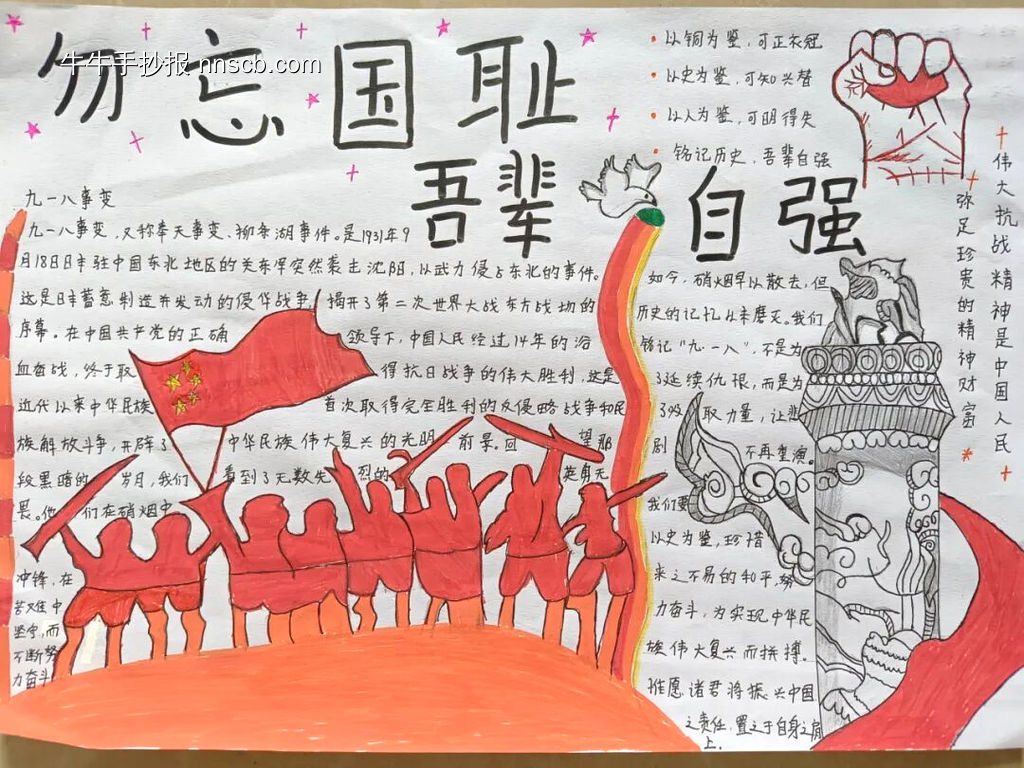 勿忘国耻
牛牛手抄报 nnscb.com
吾辈自强
以铜为鉴,可正衣冠
以史为鉴,可知兴替
以人为鉴,可明得失
铭记历史,吾辈自强
伟大抗战精神是中国人民
弥足珍贵的精神财富
九一八事变
九一八事变,又称奉天事变、柳条湖事件。是1931年9
月18日日本驻中国东北地区的关东军突然袭击沈阳,以武力侵占东北的事件。
这是日本蓄意制造并发动的侵华战争,揭开了第二次世界大战东方战场的
序幕。在中国共产党的正确领导下,中国人民经过14年的浴
血奋战,终于取得抗日战争的伟大胜利,这是
近代以来中华民族首次取得完全胜利的反侵略战争和民
族解放斗争,开辟了中华民族伟大复兴的光明前景。回望那
段黑暗的岁月,我们看到了无数先烈的英勇无
畏。他们在硝烟中
冲锋,在
苦难中
坚守,而
不断努
力奋斗
如今,硝烟早以散去,但
历史的记忆从未磨灭。我们
铭记“九·一八”,不是为
了延续仇恨,而是为
了汲取力量,让悲
剧不再重演。
我们要
以史为鉴,珍惜
来之不易的和平,努
力奋斗,为实现中华民
族伟大复兴而拼搏。
惟愿诸君将振兴中国
之责任,置之于自身之肩
上。